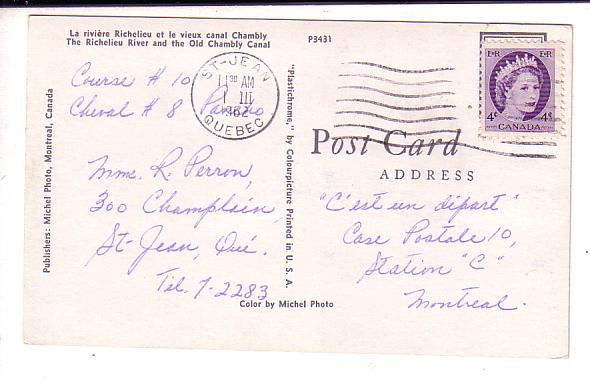 La rivière Richelieu et le vieux canal Chambly
The Richelieu River and the Old Chambly Canal
P3431
Course # 10
Cheval # 8
Mme. R. Perron,
300 Champlain,
St-Jean, Qué.
Tél. 7-2283
Color by Michel Photo
Publishers: Michel Photo, Montreal, Canada
"Plastichrome," by Colourpicture Printed in U. S. A.
ST-JEAN
30 AM
III
1962
QUEBEC
E II R E II R
4¢ 4¢
CANADA
Post Card
ADDRESS
"C'est un départ"
Case Postale 10,
Station "C"
Montreal.